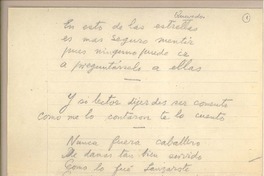 Quevedo
1
En esto de las estrellas
es mas seguro mentir
pues ninguno puede ir
a preguntárselo a ellas
Y así lector dijerdes ser comento
como me lo contaron te lo cuento
Nunca fuera caballero
de damas tan bien servido
como lo fué Lanzarote